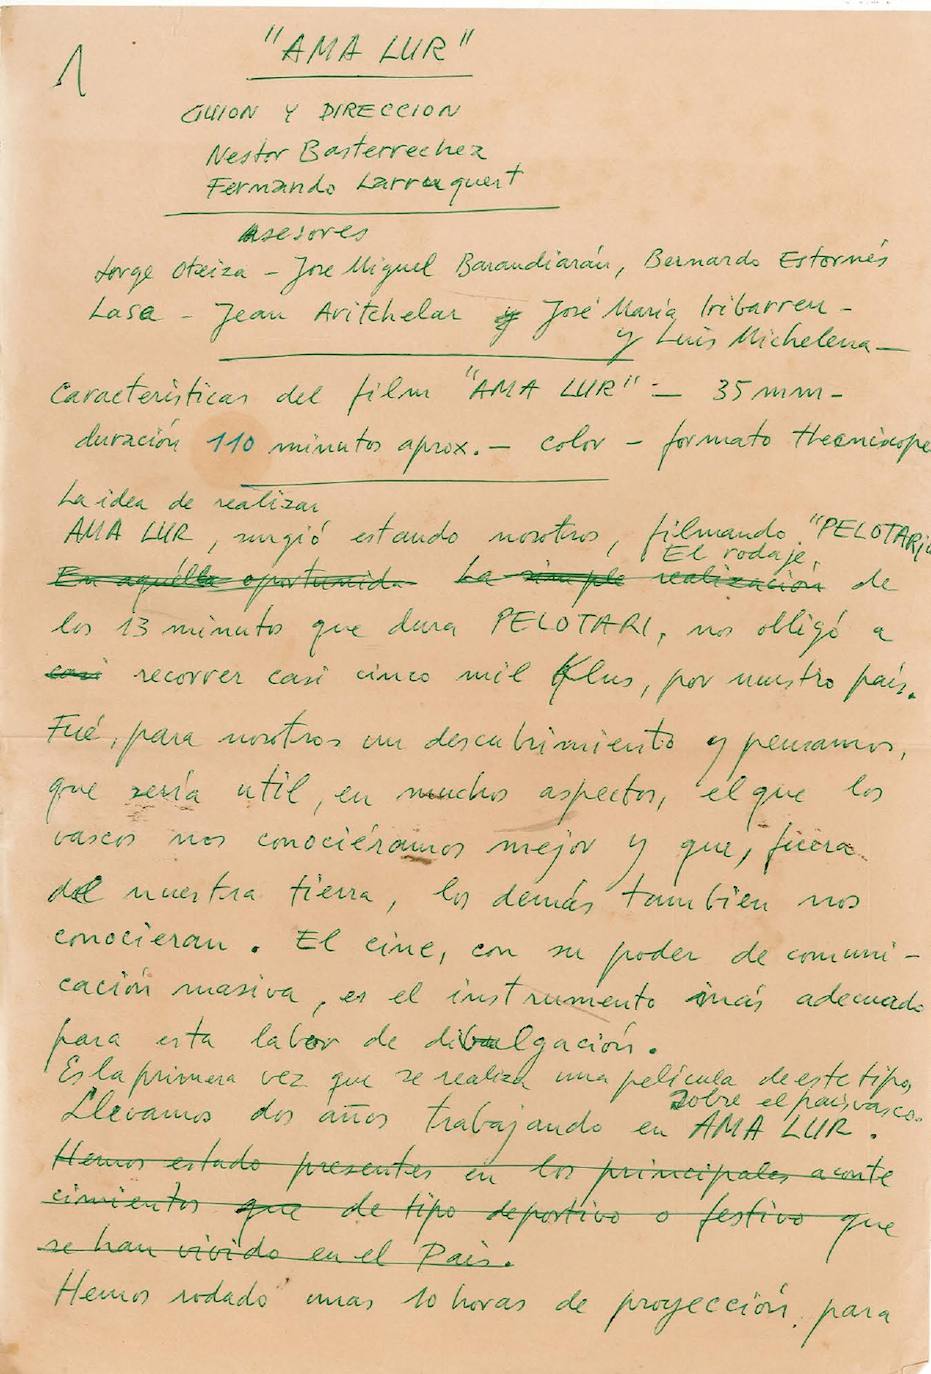 1
"AMA LUR"
GUION Y DIRECCION
Nestor Basterrechea
Fernando Larruquert
Asesores
Jorge Oteiza - Jose Miguel Barandiarán, Bernardo Estornés
Lasa - Jean Aritchelar y José María Iribarren -
y Luis Michelena -
Características del film "AMA LUR" - 35 mm -
duración 110 minutos aprox. - color - formato thecniscope
La idea de realizar
AMA LUR, surgió estando nosotros, filmando "PELOTARI"
El rodaje,
En aquélla oportunida. La simple realización de
los 13 minutos que dura PELOTARI, nos obligó a
casi recorrer casi cinco mil Klms, por nuestro país.
Fué, para nosotros un descubrimiento y pensamos,
que sería util, en muchos aspectos, el que los
vascos nos conociéramos mejor y que, fuera
de nuestra tierra, los demás tambien nos
conocieran. El cine, con su poder de comuni-
cación masiva, es el instrumento más adecuado
para esta labor de divulgación.
Es la primera vez que se realiza una película de este tipo,
sobre el país vasco.
Llevamos dos años trabajando en AMA LUR.
Hemos estado presentes en los principales aconte
cimientos que de tipo deportivo o festivo que
se han vivido en el Pais.
Hemos rodado unas 10 horas de proyección, para